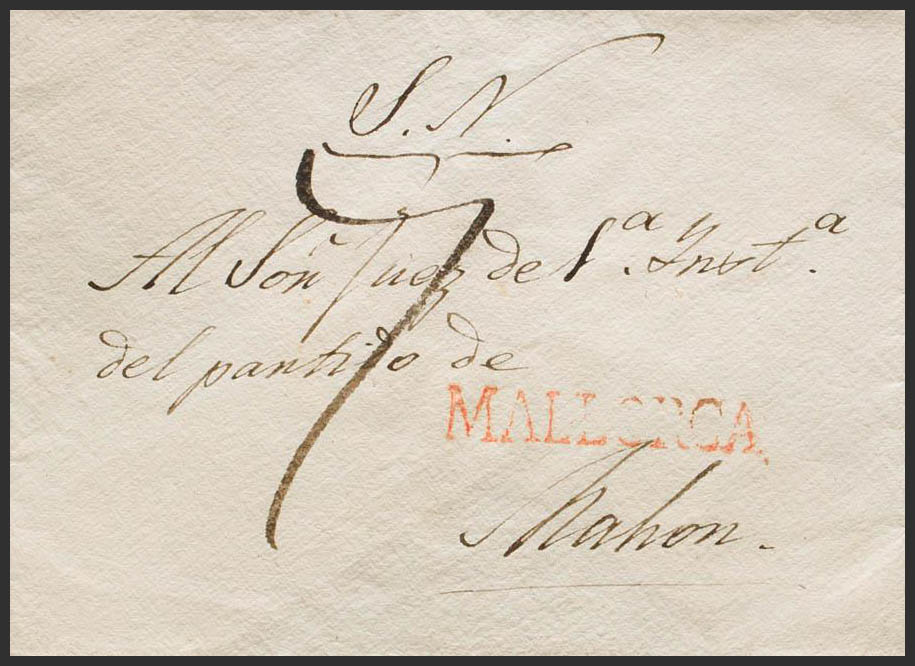 S. N.
7
Al Señr Juez de 1.ª Ynst.ª
del partido de
MALLORCA
Mahon.